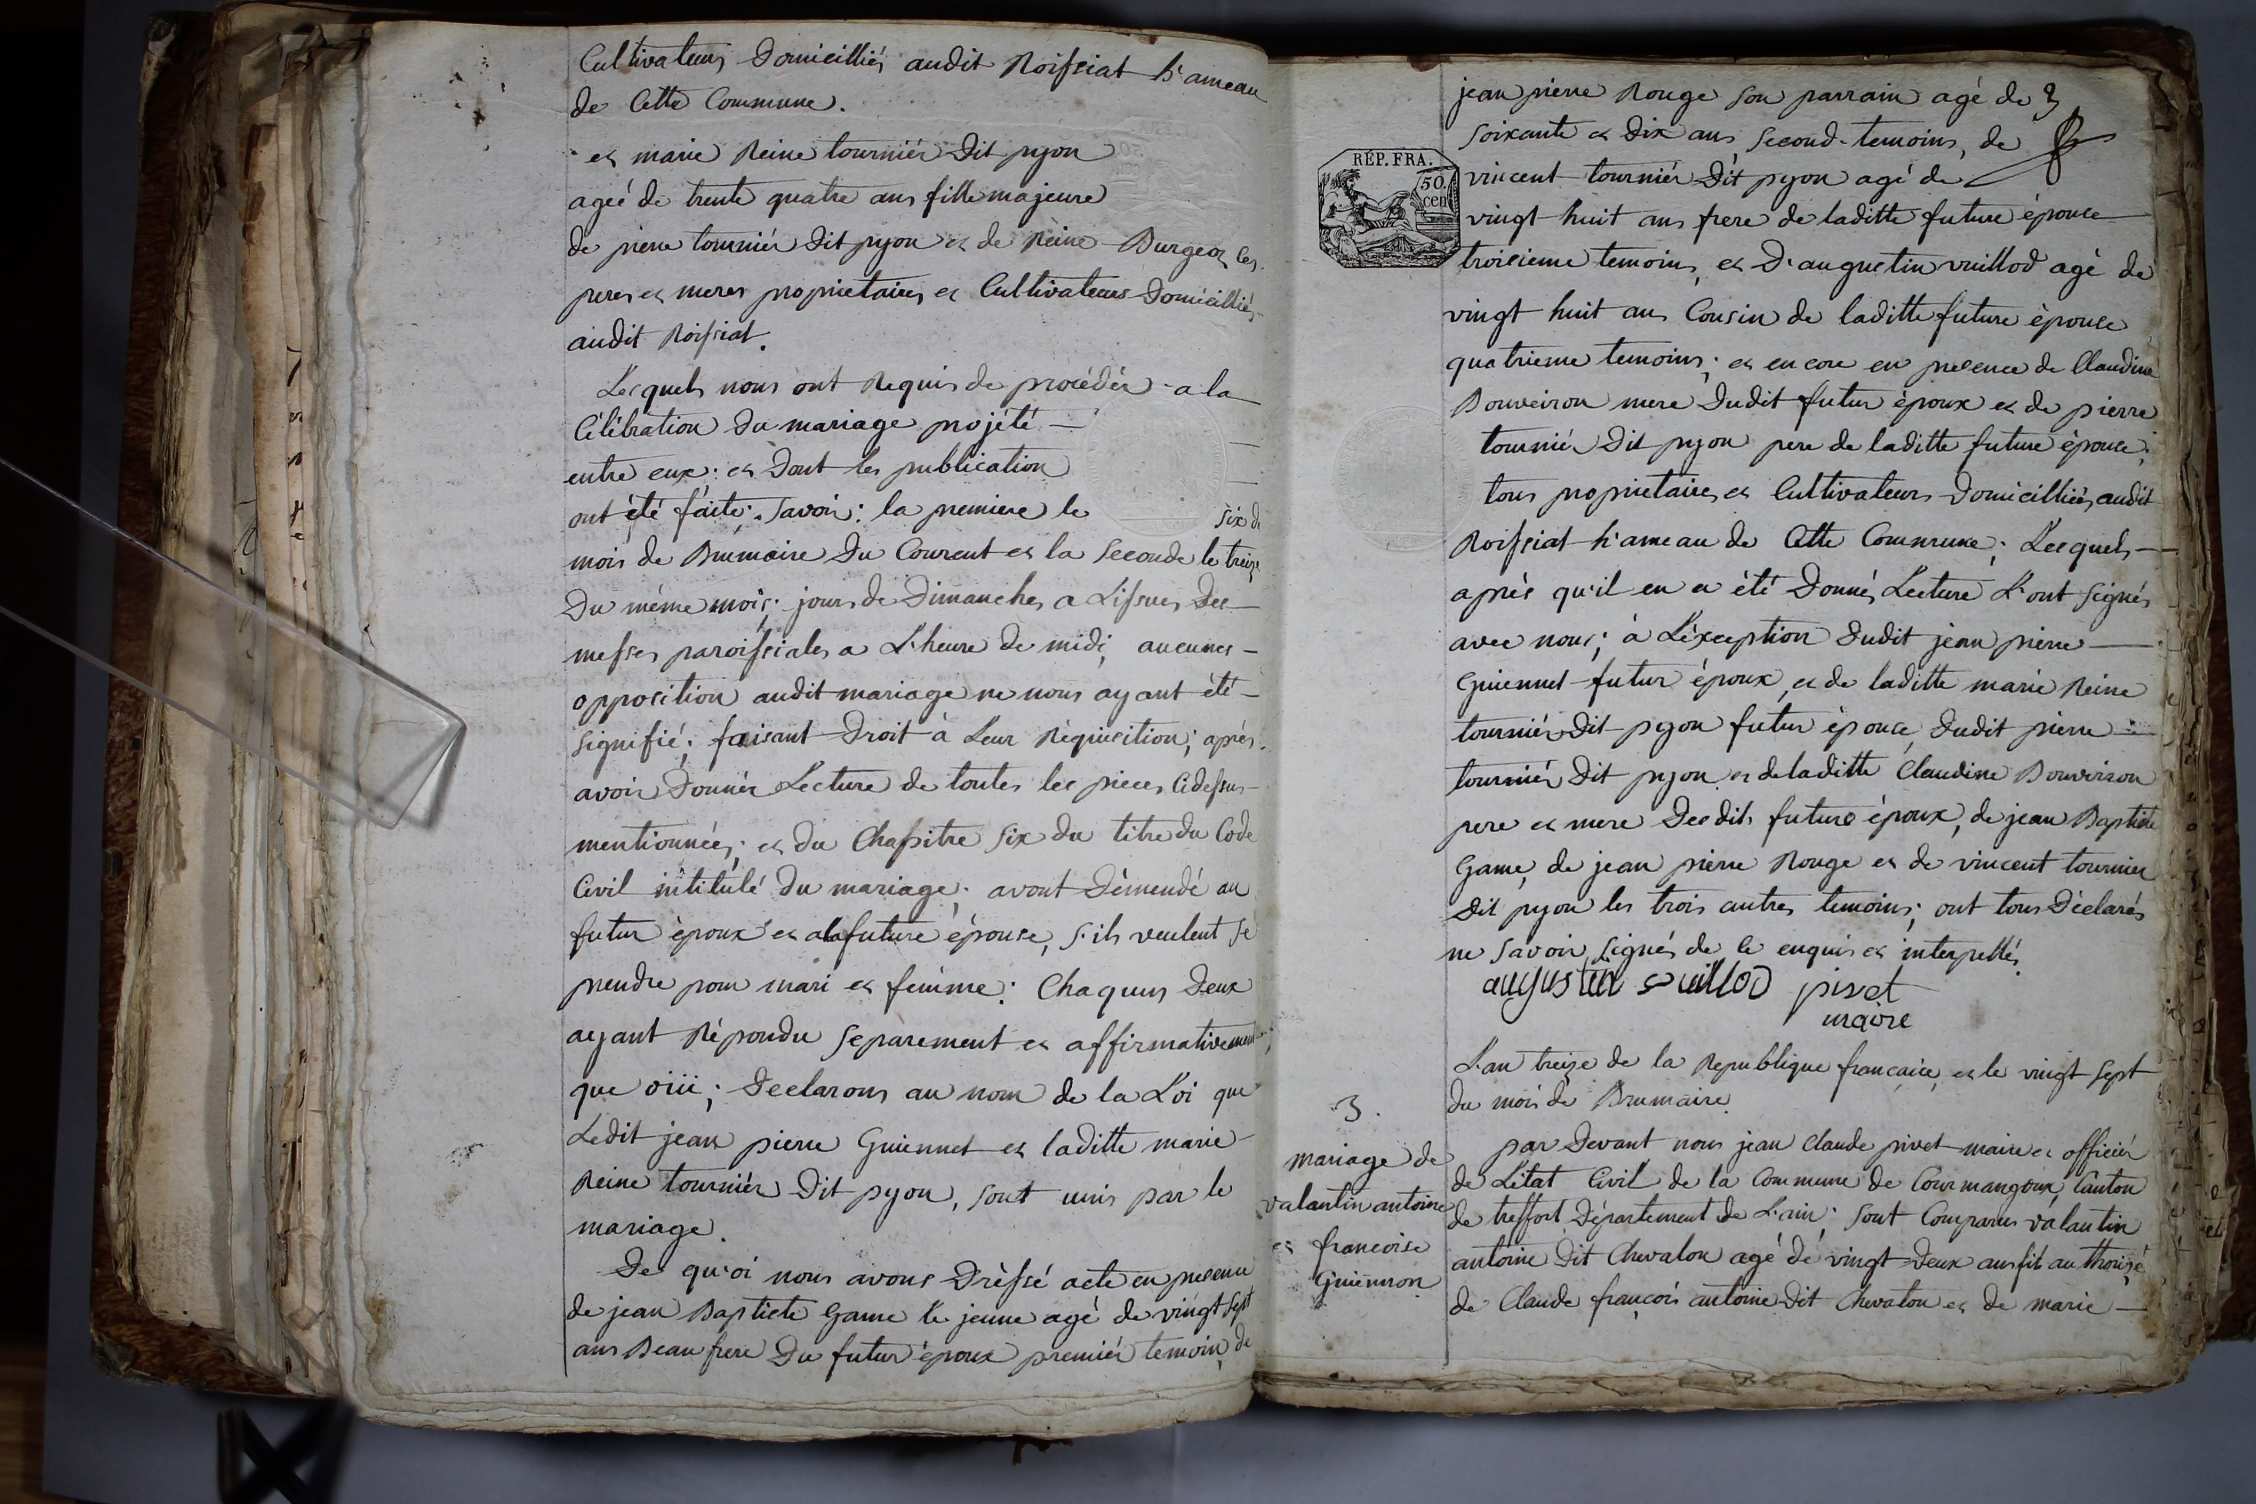 Cultivateurs Domicilliés audit Roissiat h'ameau
de Cette Commune.
et marie Reine tourniér Dit pyon
ageé de trente quatre ans fille majeure
de pierre tourniér Dit pyon et de Reine Burgeoz Ces
peres et meres proprietaires et Cultivateurs Domicilliés
audit Roissiat.
Lesquels nous ont Requis de procédér a la
Célébration Du mariage projété
entre eux; et Dont les publication
ont été faite; savoir: la premiere le six du
mois de Brumaire Du Courent et la seconde le treize
Du méme mois; jours de Dimanches a L'issues Des
messes paroissiales a L'heure de midi; aucunes
opposition audit mariage ne nous ayant été
signifié; faisant Droit à Leur Réquisition; aprés
avoir Donnér Lecture de toutes les pieces Cidessus
mentionnées; et du Chapitre six du titre du Code
Civil intitulé Du mariage; avont Démendé au
futur époux et alafuture épouse, s'ils veulent se
prendre pour mari et femme: Chaquns Deux
ayant Répondu separement et affirmativement;
que oiii; Declarons au nom de la Loi que
Ledit jean pierre Guiennet et laditte marie
Reine tourniér Dit pyon, sont unis par le
mariage.
De qu'oi nous avons Dréssé acte en presence
de jean Baptiste Game le jeune agé de vingt sept
ans Beau frere Du futur époux premiér temoin, de
jean pierre Rouge son parrain agé de
soixante et Dix ans second temoins, de
RÉP. FRA.
50
cen
vincent tourniér Dit pyon agé de
vingt huit ans frere de laditte future épouse
troisieme temoins, et D'augustin vuillod agé de
vingt huit ans Cousin de laditte future épouse
quatrieme temoins; et encore en presence de Claudine
Bouveiron mere Dudit futur époux et de pierre
tourniér Dit pyon pere de laditte future épouse;
tous proprietaires et Cultivateurs Domicilliés audit
Roissiat h'ameau de Cette Commune; Lesquels
aprés qu'il en a été Donnés Lecture L'ont signés
avec nous; à L'éxception Dudit jean pierre
Guiennet futur époux, et de laditte marie Reine
tourniér Dit pyon futur épouse, Dudit pierre
tourniér Dit pyon et deladitte Claudine Bouvoiron
pere et mere Desdits futurs époux, de jean Baptiste
Game, de jean pierre Rouge et de vincent tournier
Dit pyon les trois autres temoins; ont tous Déclarés
ne savoir signés de le enquis et interpellés.
augustin vuillod pivet
maire
L'an treize de la Republique francaise, et le vingt sept
du mois de Brumaire.
3.
mariage de
valantin antoine
et francoise
Guiennon
par Devant nous jean claude pivet maire et officiér
de L'état Civil de la Commune de Courmangoux, Canton
de treffort Département de L'ain; sont Comparus valantin
antoine Dit Chevalon agé de vingt Deux ans fils authorisé
de Claude françois antoine Dit Chevalon et de marie